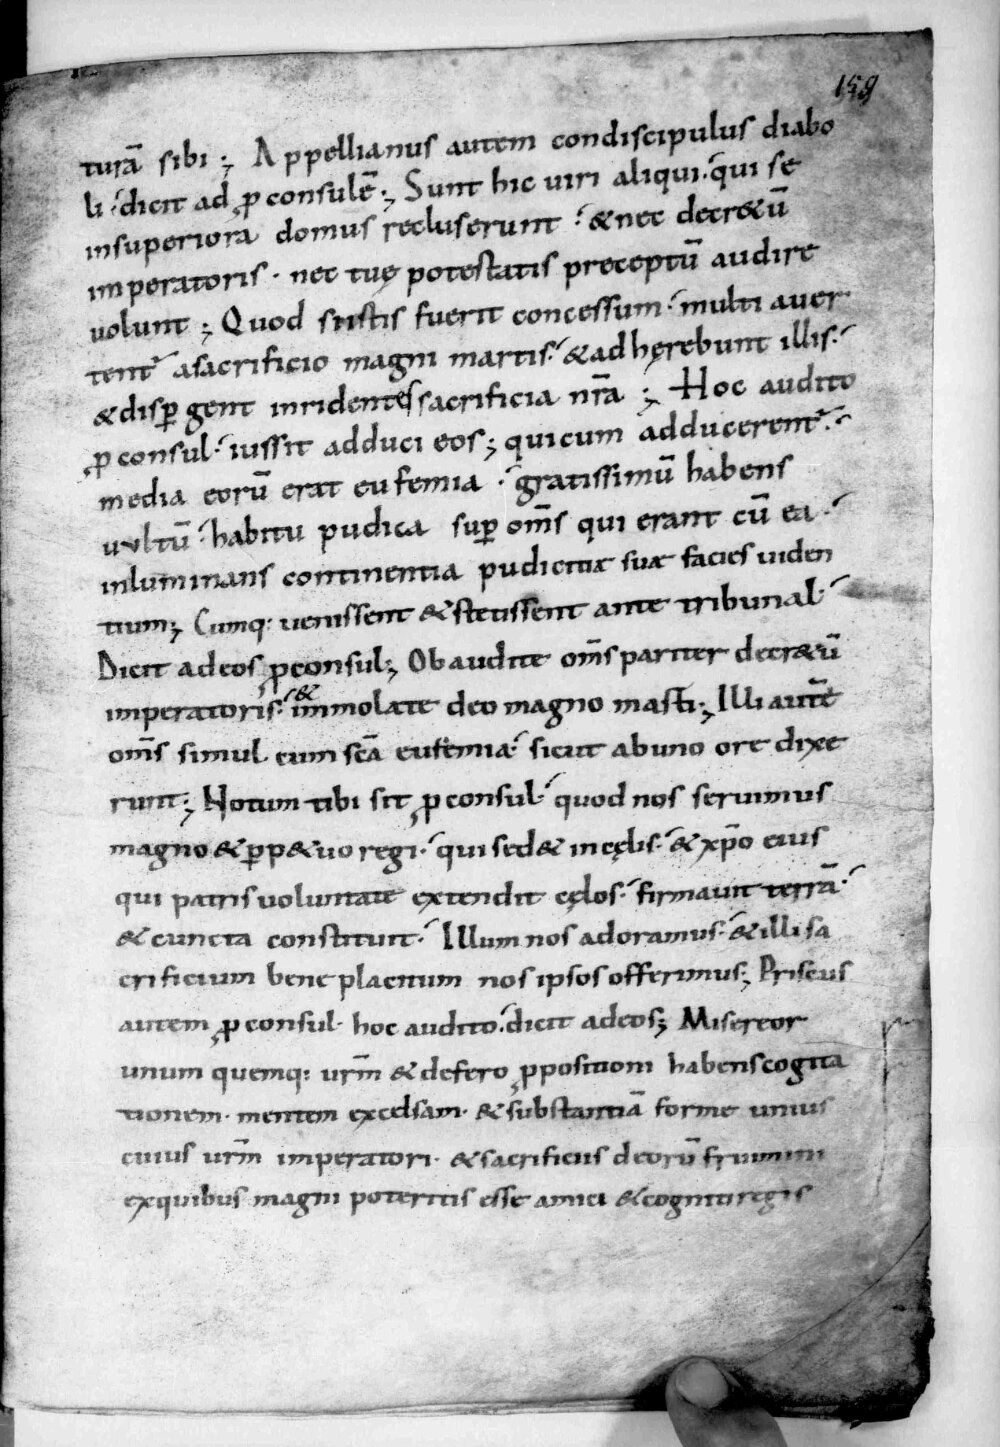 159
turā sibi ; Appellianus autem condiscipulus diabo
li · dicit ad ꝓconsulē ; Sunt hic uiri aliqui · qui se
insuperiora domus recluserunt · & nec decr&ū
imperatoris · nec tuę potestatis preceptū audire
uolunt ; Quod si istis fuerit concessum · multi auer
tent᷑ asacrificio magni martis · & adhęrebunt illis ·
& disꝑgent inridentes sacrificia nr̄a ; Hoc audito
ꝓconsul · iussit adduci eos ; qui cum adducerent᷑ ·
media eorū erat eufemia · gratissimū habens
uultū · habitu pudica suꝑ om̄s qui erant cū ea ·
inluminans continentia pudicitiæ suæ facies uiden
tium ; Cumq: uenissent & stetissent ante tribunal ·
Dicit adeos ꝓconsul ; Obaudite om̄s pariter decr&ū
imperatoris · & immolate deo magno marti ; Illi autē
om̄s simul cum sc̄a eufemia · sicut abuno ore dixe
runt ; Notum tibi sit ꝓconsul · quod nos seruimus
magno & ꝑp&uo regi · qui sed& incęlis · & xp̄o eius
qui patris uoluntate extendit cęlos · firmauit terrā ·
& cuncta constituit · Illum nos adoramus · & illi sa
crificium bene placitum nos ipsos offerimus ; Priscus
autem ꝓconsul · hoc audito · dicit adeos ; Misereor
unum quemq: ur̄m & defero ꝓpositioni habens cogita
tionem · mentem excelsam · & substantiā forme unius
cuius ur̄m imperatori · & sacrificiis deorū fruimini
exquibus magni poteritis esse amici & cogniti regis